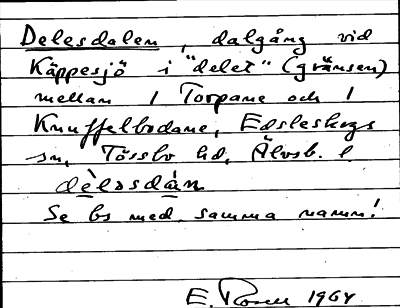 Delesdalen, dalgång vid
Käppesjö i "delet" (gränsen)
mellan 1 Torpane och 1
Knuffelbodane, Edsleskogs
sn, Tössbo hd, Älvsb. l.
dè̀ləsdán
Se bs med samma namn!
E. Rosell 1964